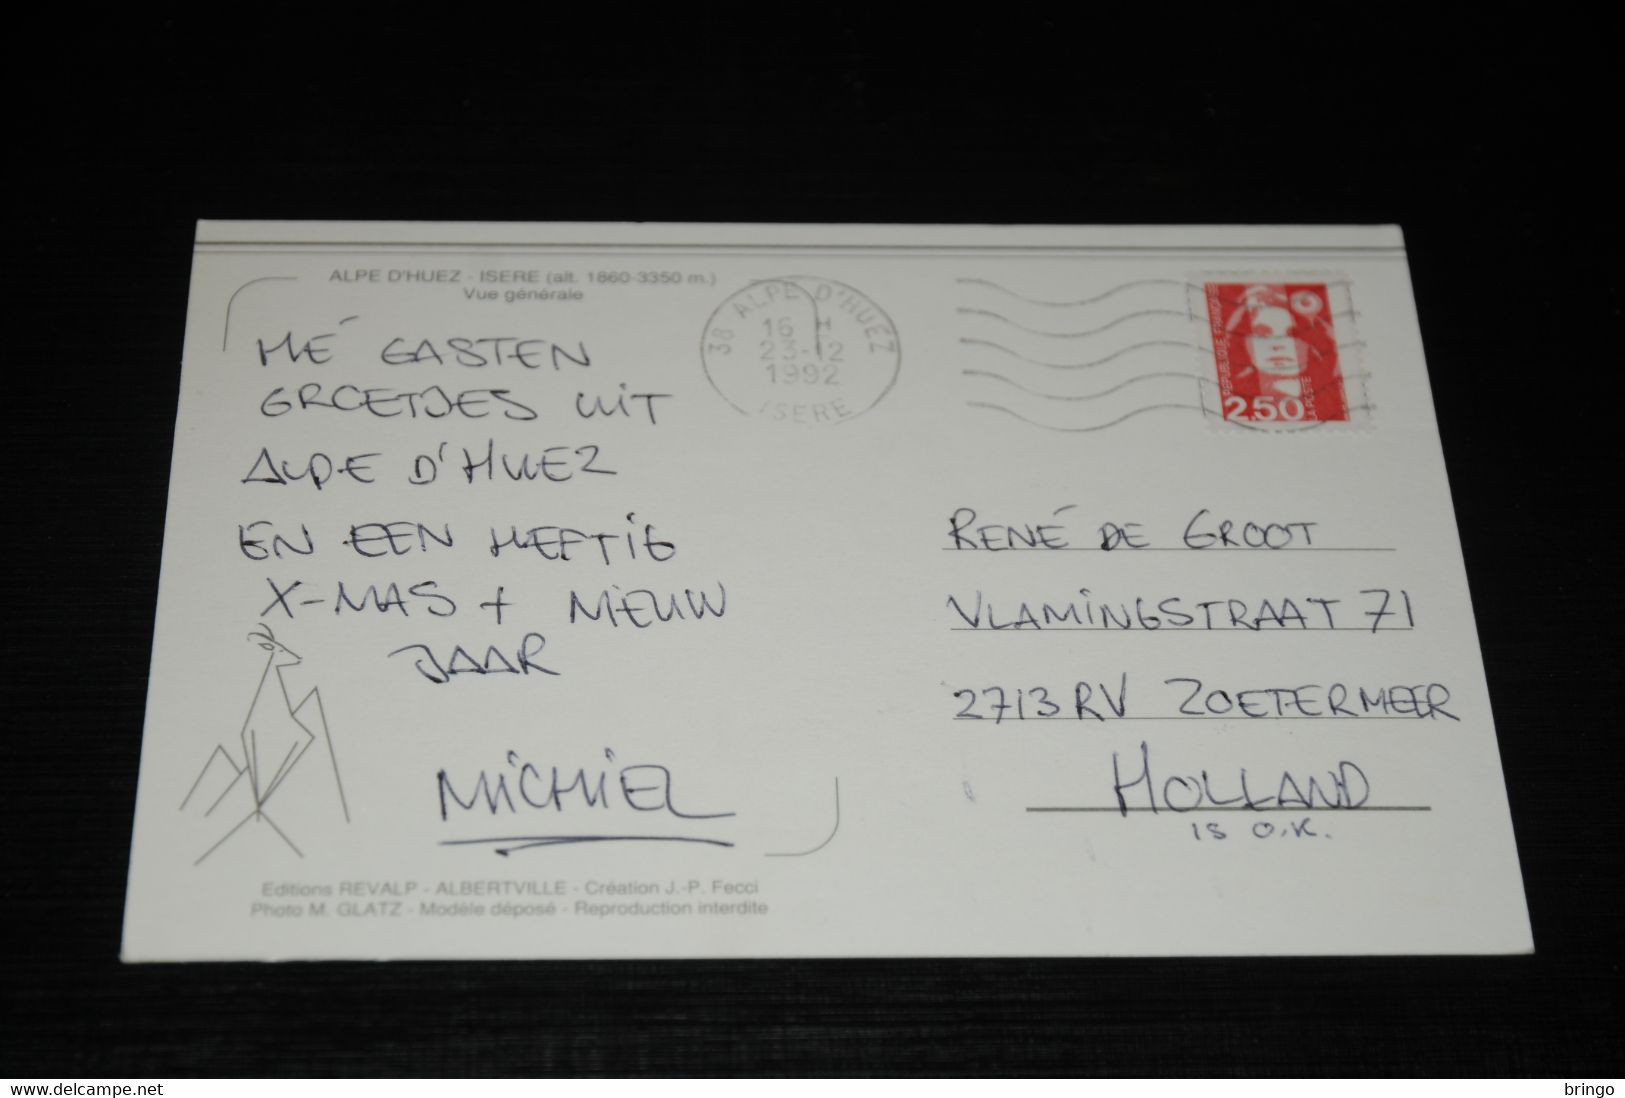 ALPE D'HUEZ - ISERE (alt. 1860-3350 m.)
Vue générale
HÉ GASTEN
GROETJES UIT
ALPE D'HUEZ
EN EEN HEFTIG
X-MAS + NIEUW
JAAR
MICHIEL
Editions REVALP - ALBERTVILLE - Création J.-P. Fecci
Photo M. GLATZ - Modèle déposé - Reproduction interdite
38 ALPE D'HUEZ
16 H
23-12
1992
ISERE
REPUBLIQUE FRANÇAISE
2,50
LA POSTE
RENÉ DE GROOT
VLAMINGSTRAAT 71
2713 RV ZOETERMEER
HOLLAND
IS O.K.
delcampe.net
bringo